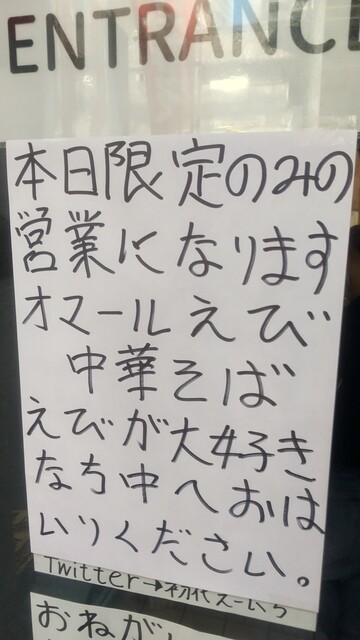 ENTRANCE
本日限定のみの
営業になります
オマールえび
中華そば
えびが大好き
なち中へおは
いりください。
Twitter→初代えーいち
おねが